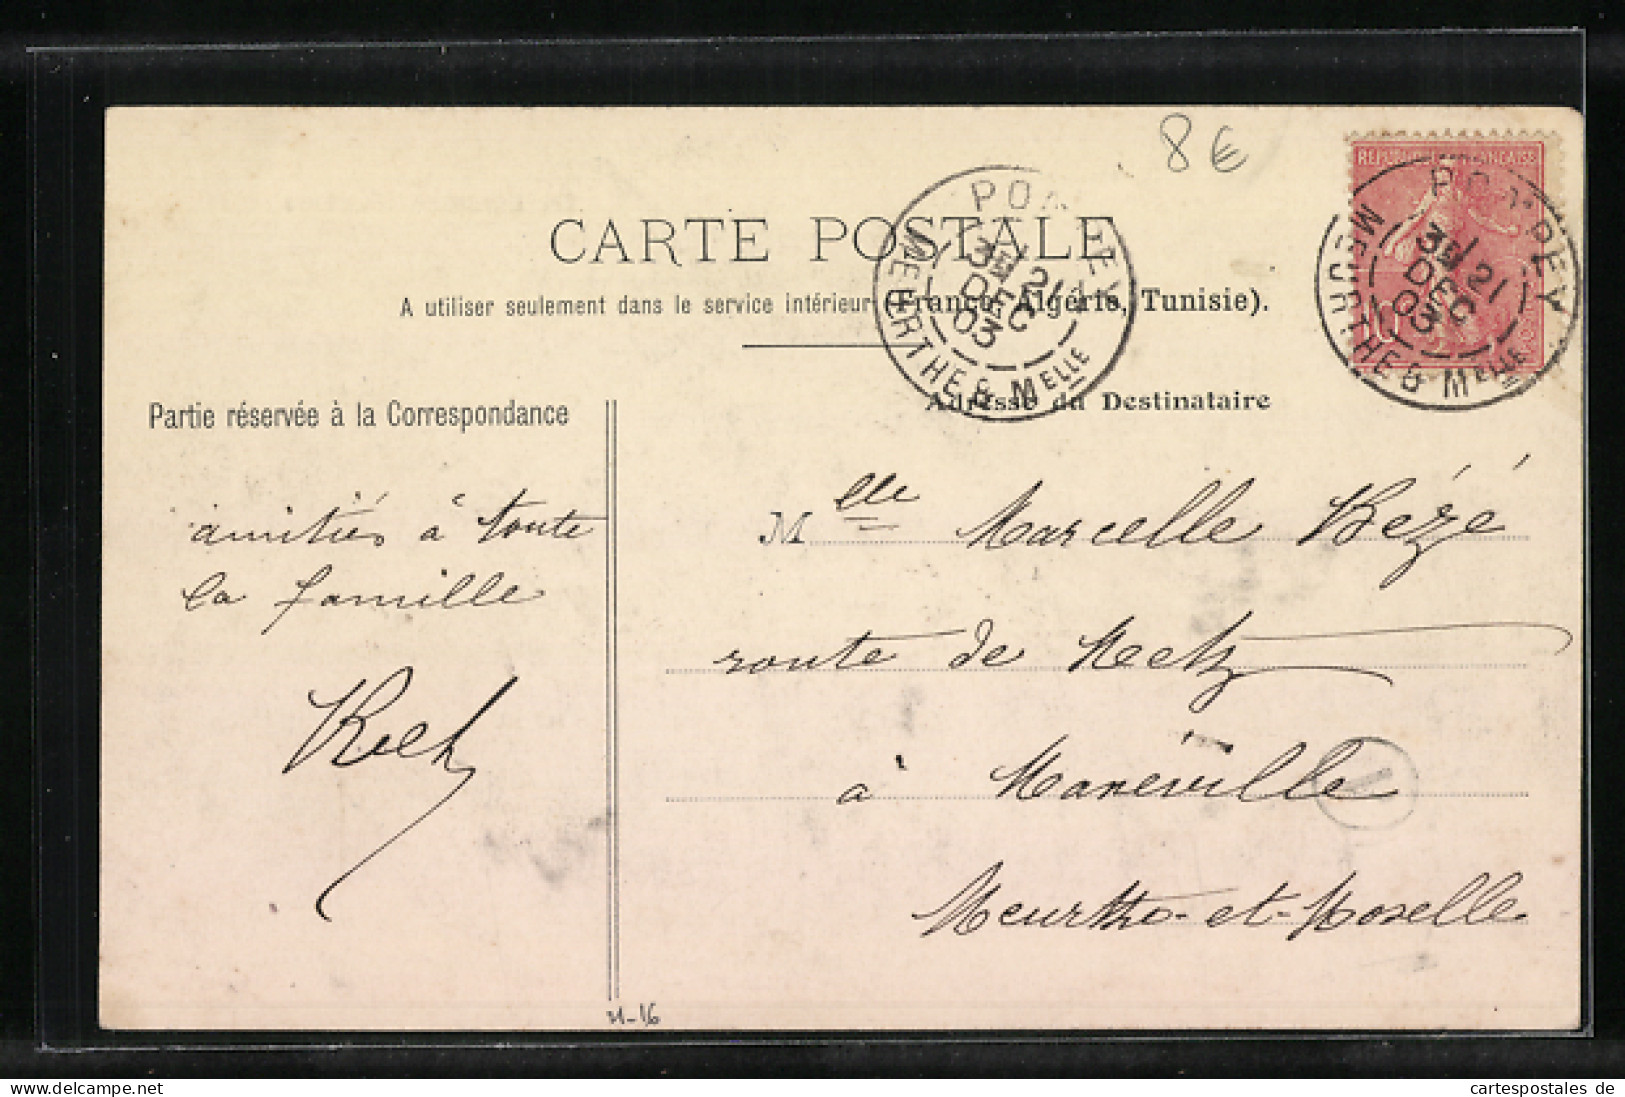 8 €
RÉPUBLIQUE FRANÇAISE
POMPEY
3E / 21
DEC
03
MEURTHE & MELLE
CARTE POSTALE
POMPEY
3E / 21
DEC
03
MEURTHE & MELLE
A utiliser seulement dans le service intérieur (France, Algérie, Tunisie).
Partie réservée à la Correspondance
Adresse du Destinataire
amitiés à toute
la famille
Mlle Marcelle Kézé
route de Metz
à Maxéville
Meurthe-et-Moselle
21-16
cartespostales de